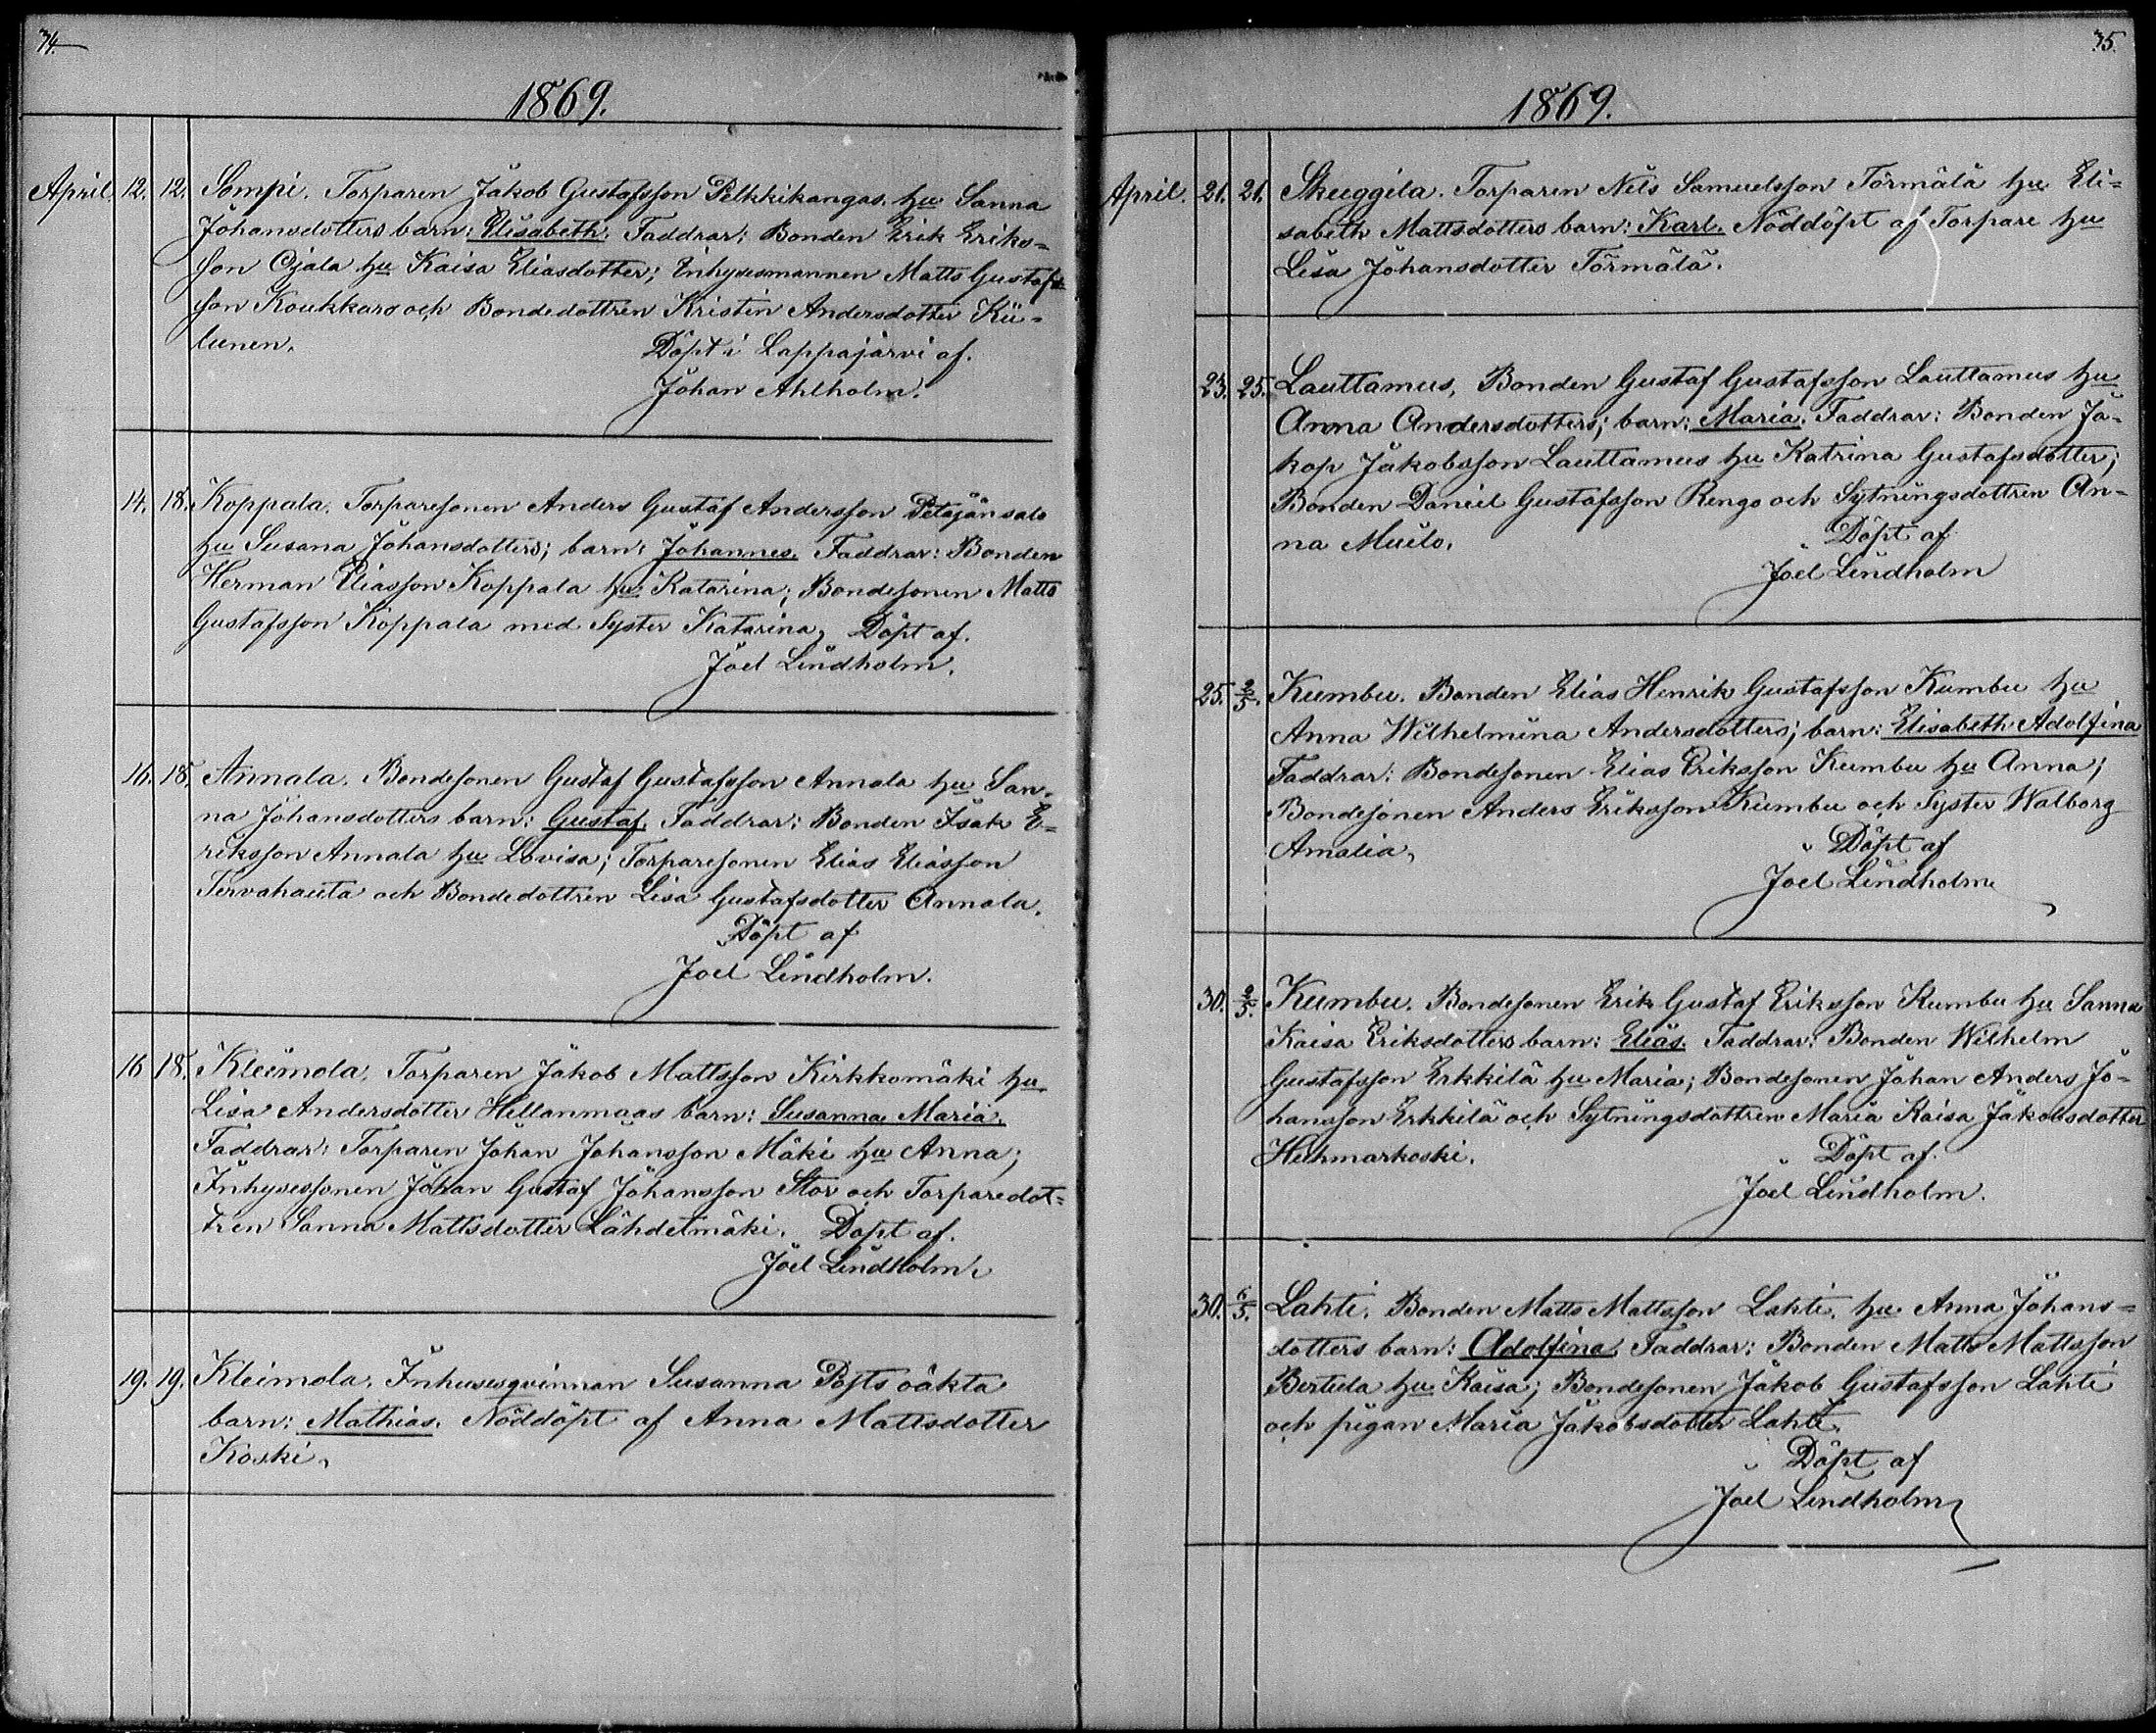 34.
1869.
April. 12. 12. Sompi. Torparen Jakob Gustafsson Pelkkikangas. hu Sanna
Johansdotters barn: Elisabeth. Faddrar: Bonden Erik Eriks=
son Ojala hu Kaisa Eliasdotter; Inhysesmannen Matts Gustafs=
son Koukkaro och Bondedottren Kristin Andersdotter Kii=
lunen. Döpt i Lappajärvi af.
Johan Ahlholm.
14. 18. Koppala. Torparesonen Anders Gustaf Andersson Petäjänsalo
hu Susana Johansdotters; barn: Johannes. Faddrar: Bonden
Herman Eliasson Koppala hu Katarina; Bondesonen Matts
Gustafsson Koppala med Syster Katarina, Döpt af.
Joel Lindholm.
16. 18. Annala. Bondesonen Gustaf Gustafsson Annala hu San=
na Johansdotters barn: Gustaf. Faddrar: Bonden Isak E=
riksson Annala hu Lovisa; Torparesonen Elias Eliasson
Tervahauta och Bondedottren Lisa Gustafsdotter Annala.
Döpt af
Joel Lindholm.
16 18. Kleimola. Torparen Jakob Mattsson Kirkkomäki hu
Lisa Andersdotter Hellanmaas barn: Susanna Maria.
Faddrar: Torparen Johan Johansson Mäki hu Anna;
Inhysessonen Johan Gustaf Johansson Stor och Torparedot=
tren Sanna Mattsdotter Lähdetmäki. Döpt af.
Joel Lindholm.
19. 19. Kleimola. Inhusesqvinnan Susanna Posts oäkta
barn: Mathias. Nöddöpt af Anna Mattsdotter
Koski.
35.
1869.
April. 21. 21. Skuggila. Torparen Nils Samuelsson Törmälä hu Eli=
sabeth Mattsdotters barn: Karl. Nöddöpt af Torpare hu
Lisa Johansdotter Törmälä.
23. 25. Lauttamus. Bonden Gustaf Gustafsson Lauttamus hu
Anna Andersdotters; barn: Maria. Faddrar: Bonden Ja=
kop Jakobsson Lauttamus hu Katrina Gustafsdotter;
Bonden Daniel Gustafsson Rengo och Sytningsdottren An=
na Muilo. Döpt af
Joel Lindholm
25. 2/5. Kumbu. Bonden Elias Henrik Gustafsson Kumbu hu
Anna Wilhelmina Andersdotters; barn: Elisabeth Adolfina
Faddrar: Bondesonen Elias Eriksson Kumbu hu Anna;
Bondesonen Anders Eriksson Kumbu och Syster Walborg
Amalia. Döpt af
Joel Lindholm
30. 2/5. Kumbu. Bondesonen Erik Gustaf Eriksson Kumbu hu Sanna
Kaisa Eriksdotters barn: Elias. Faddrar: Bonden Wilhelm
Gustafsson Erkkilä hu Maria; Bondesonen Johan Anders Jo=
hansson Erkkilä och Sytningsdottren Maria Kaisa Jakobsdotter
Huhmarkoski. Döpt af.
Joel Lindholm.
30. 6/5. Lahti. Bonden Matts Mattsson Lahti. hu Anna Johans=
dotters barn: Adolfina. Faddrar: Bonden Matts Mattsson
Bertula hu Kaisa; Bondesonen Jakob Gustafsson Lahti
och pigan Maria Jakobsdotter Lahti.
Döpt af
Joel Lindholm